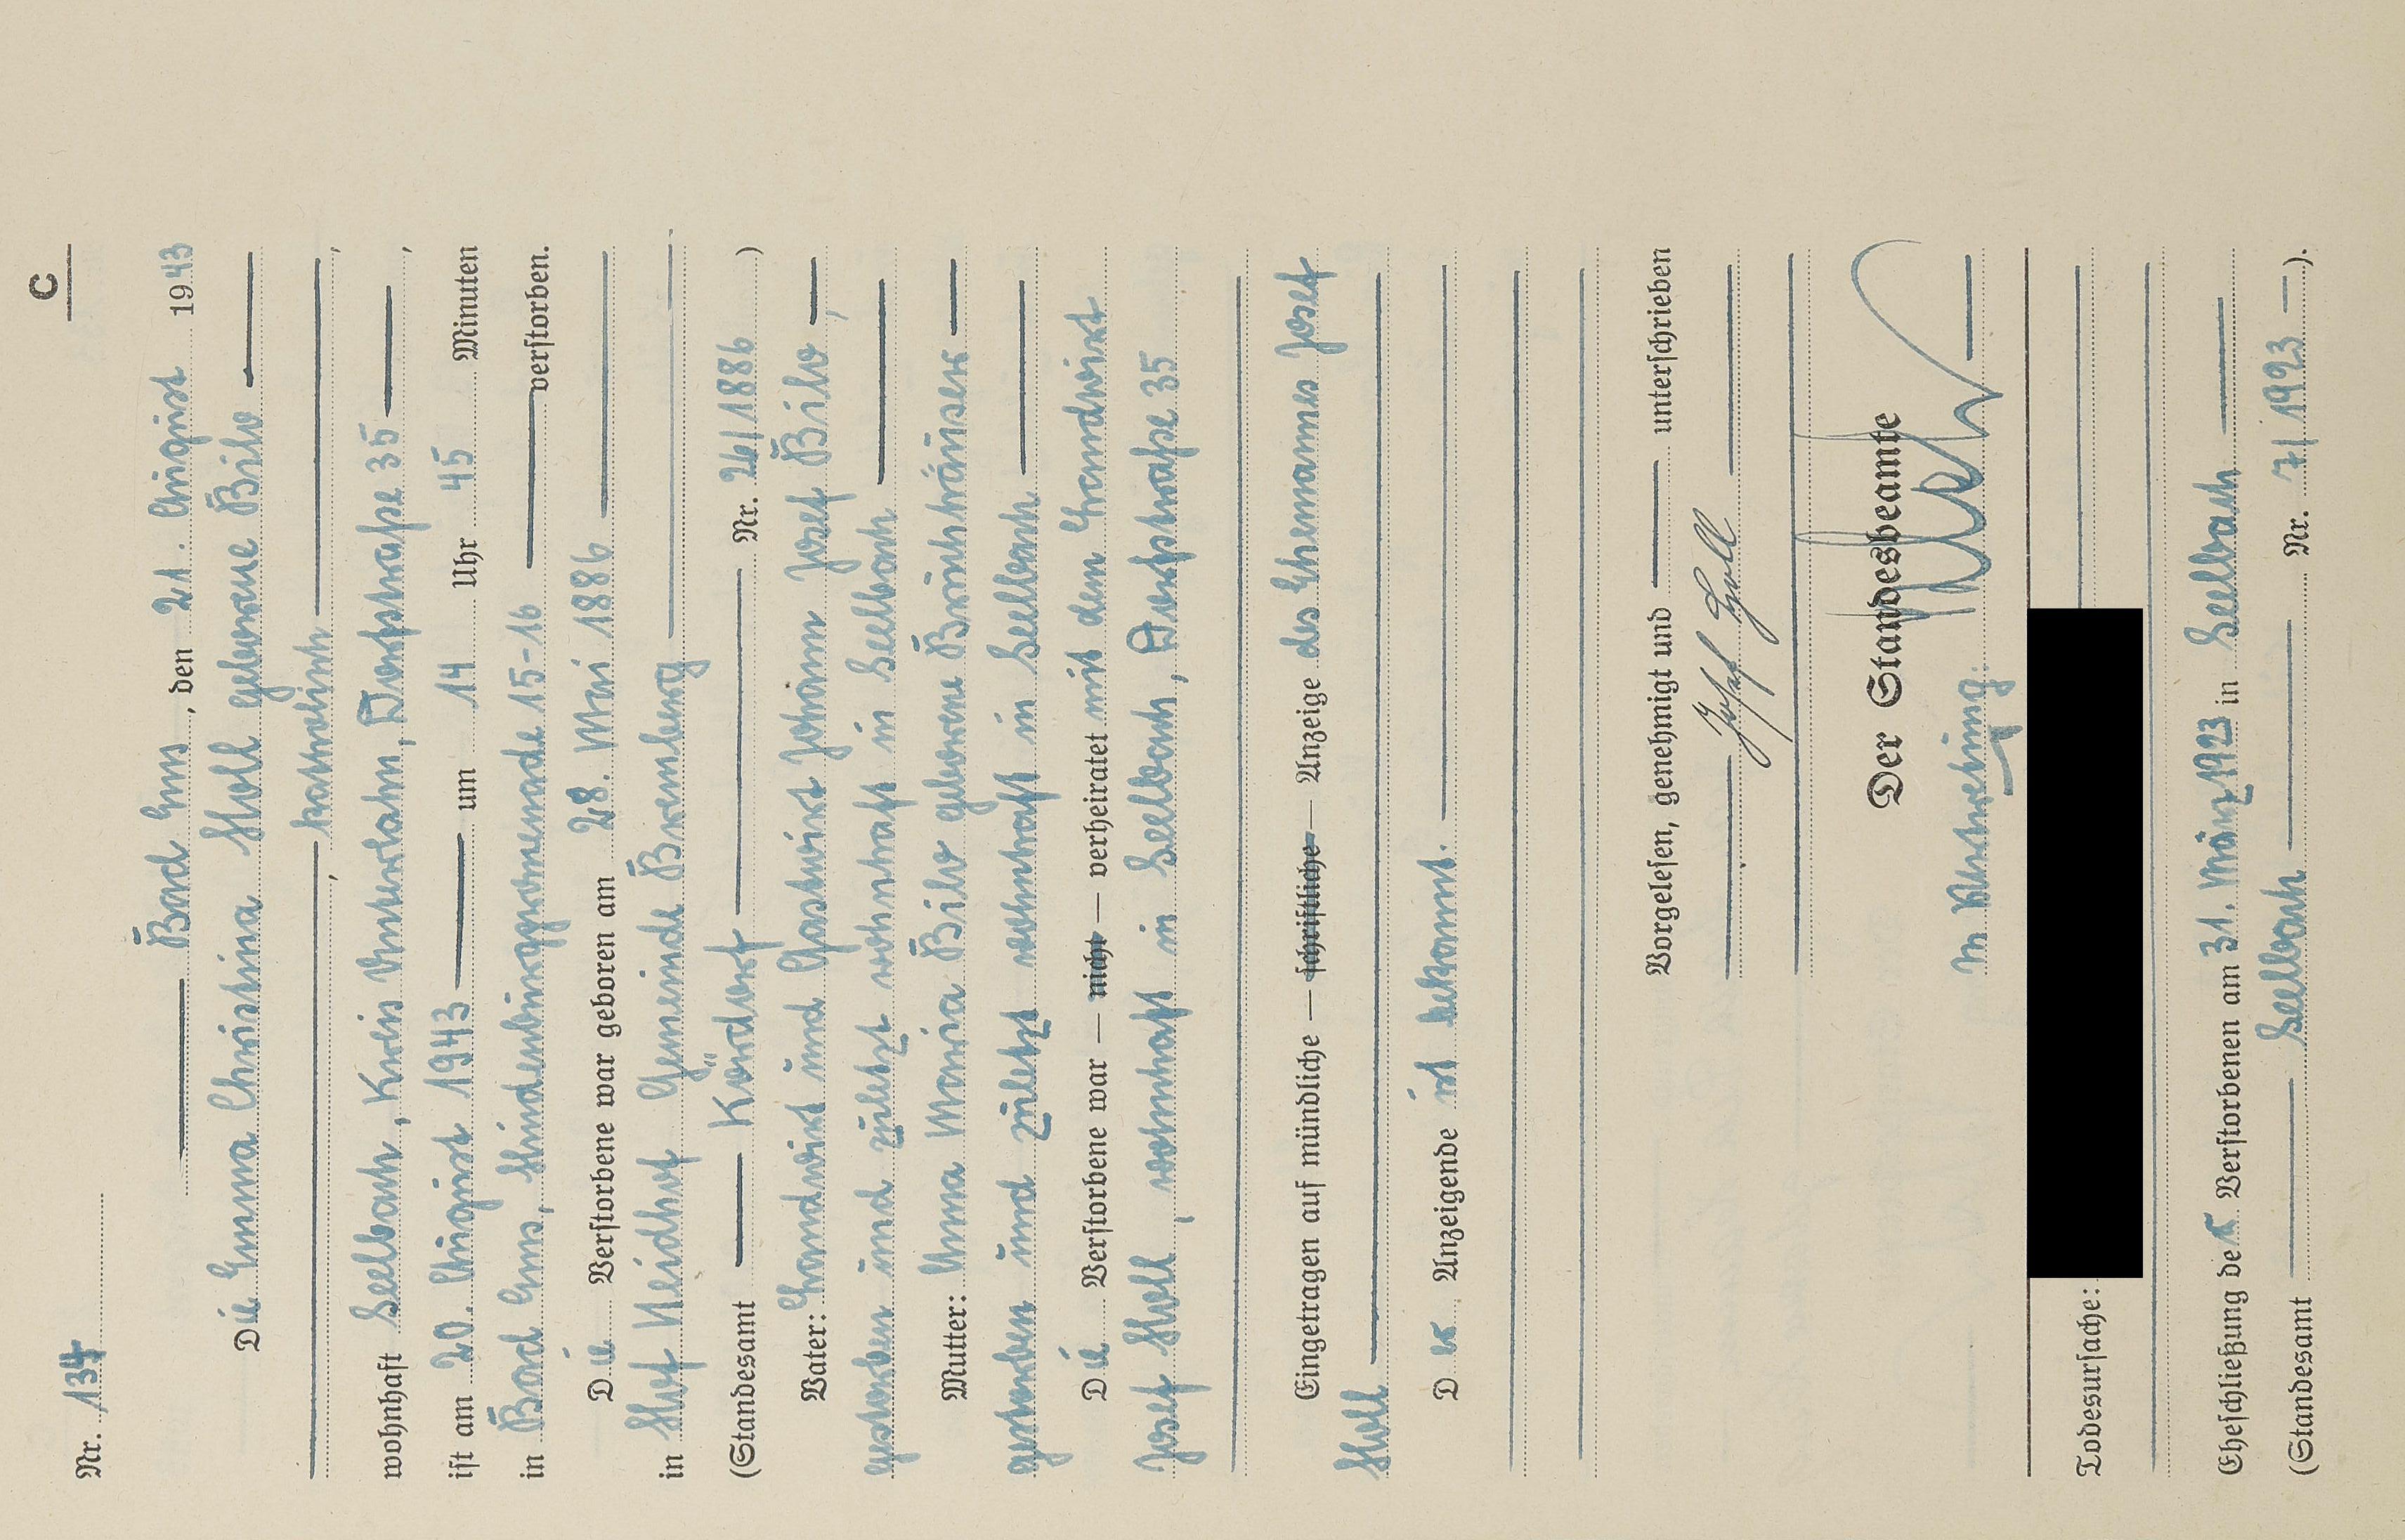 C
Nr. 134
Bad Ems, den 21. August 1943
Die Emma Christina Holl geborene Bilo
katholisch,
wohnhaft Seelbach, Kreis Unterlahn, Dorfstraße 35,
ist am 20. August 1943 um 14 Uhr 45 Minuten
in Bad Ems, Hindenburgpromenade 15-16 verstorben.
Die Verstorbene war geboren am 28. Mai 1886
in Hof Neidhof Gemeinde Bremberg
(Standesamt Kördorf Nr. 26/1886)
Vater: Landwirt und Gastwirt Johann Josef Bilo,
gestorben und zuletzt wohnhaft in Seelbach
Mutter: Anna Maria Bilo geborene
gestorben und zuletzt wohnhaft in Seelbach
Die Verstorbene war — nicht — verheiratet mit dem Landwirt
Josef Holl, wohnhaft in Seelbach, Dorfstraße 35
Eingetragen auf mündliche — schriftliche — Anzeige des Ehemannes Josef
Holl
Der Anzeigende ist bekannt.
Vorgelesen, genehmigt und unterschrieben
Josef Holl
Der Standesbeamte
In Vertretung:
Todesursache:
Eheschließung der Verstorbenen am 31. März 1923 in Seelbach
(Standesamt Seelbach Nr. 7/1923).